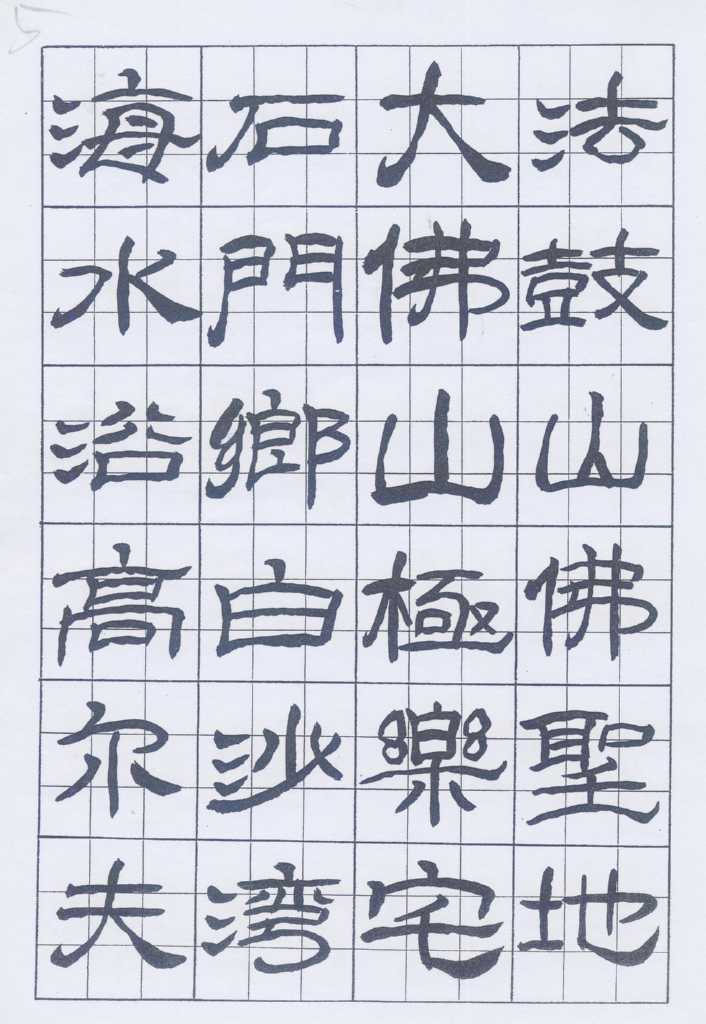 法鼓山佛聖地
大佛山極樂宅
石門鄉白沙湾
海水浴高尔夫
5